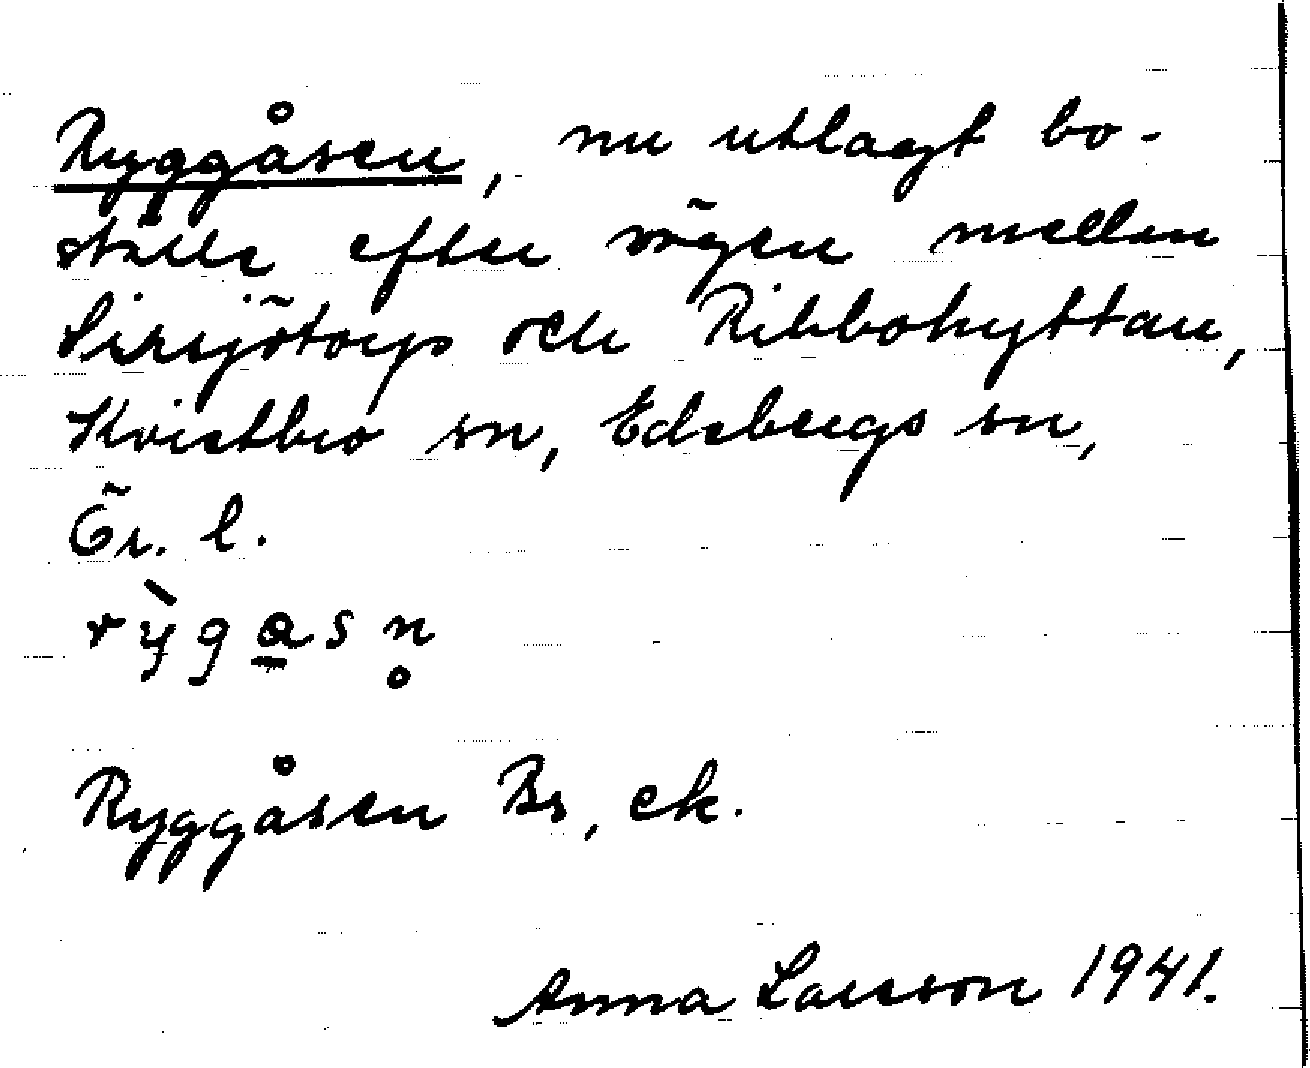 Ryggåsen, nu utlagt bo-
ställe efter vägen mellan
Sirsjötorp och Ribbohyttan,
Kvistbro sn, Edsbergs sn,
Ör. l.
rỳga̲sn̥
Ryggåsen Br, ek.
Anna Larsson 1941.